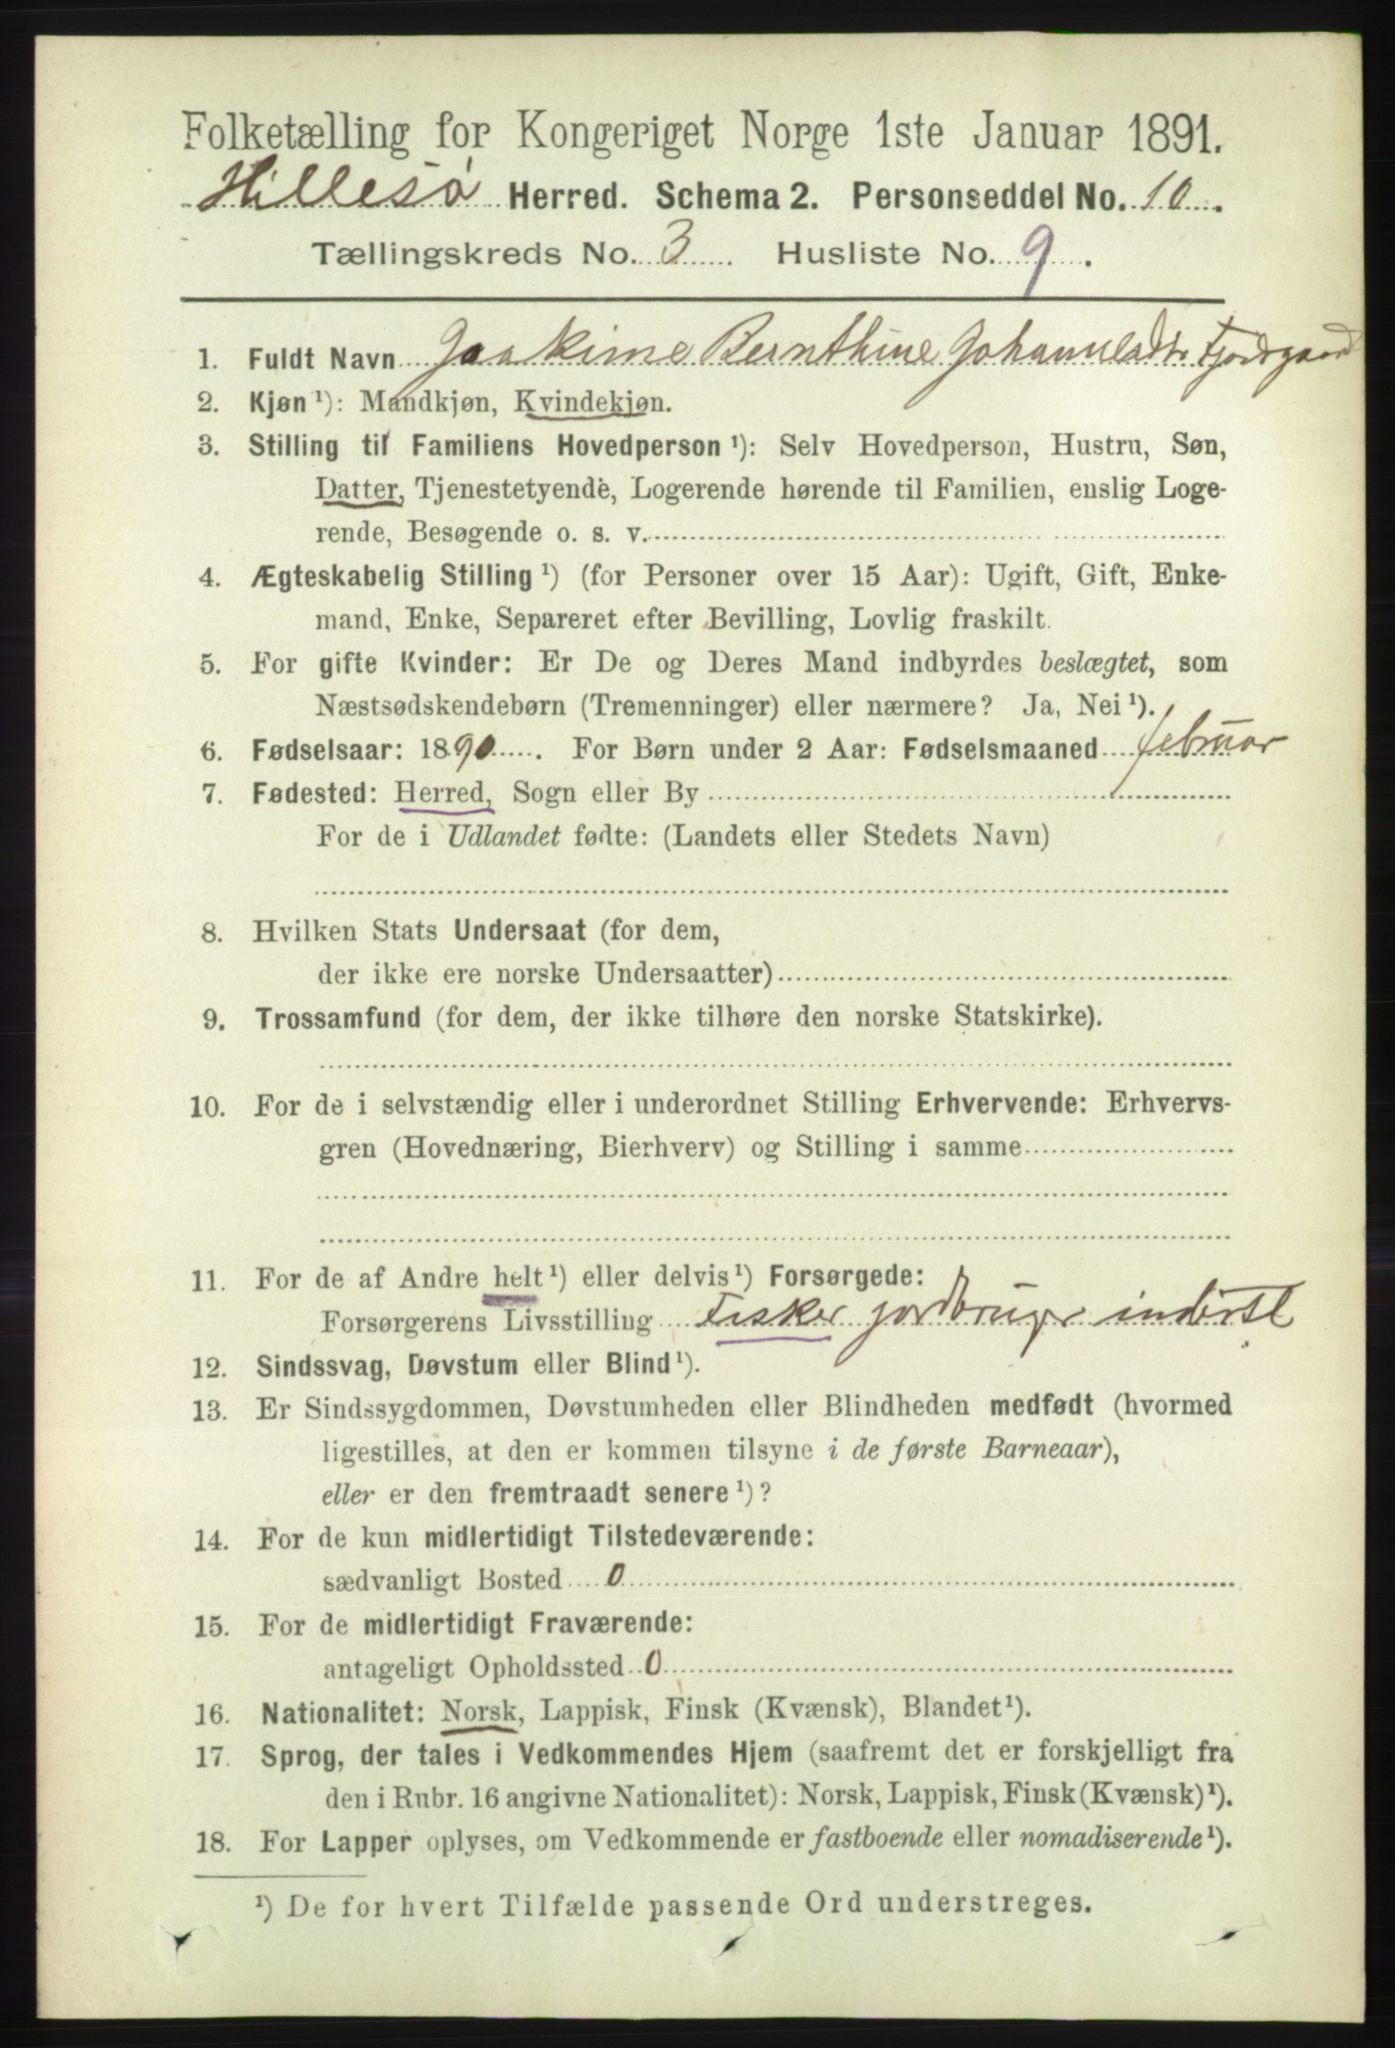 Folketælling for Kongeriget Norge 1ste Januar 1891.
Hillesø Herred. Schema 2. Personseddel No. 10.
Tællingskreds No. 3 Husliste No. 9.
1. Fuldt Navn Joakime Bernthine Johannesdtr Fjordgaard
2. Kjøn ¹): Mandkjøn, Kvindekjøn.
3. Stilling til Familiens Hovedperson ¹): Selv Hovedperson, Hustru, Søn,
Datter, Tjenestetyende, Logerende hørende til Familien, enslig Loge-
rende, Besøgende o. s. v.
4. Ægteskabelig Stilling ¹) (for Personer over 15 Aar): Ugift, Gift, Enke-
mand, Enke, Separeret efter Bevilling, Lovlig fraskilt.
5. For gifte Kvinder: Er De og Deres Mand indbyrdes beslægtet, som
Næstsødskendebørn (Tremenninger) eller nærmere? Ja, Nei ¹).
6. Fødselsaar: 1890. For Børn under 2 Aar: Fødselsmaaned februar
7. Fødested: Herred, Sogn eller By
For de i Udlandet fødte: (Landets eller Stedets Navn)
8. Hvilken Stats Undersaat (for dem,
der ikke ere norske Undersaatter)
9. Trossamfund (for dem, der ikke tilhøre den norske Statskirke).
10. For de i selvstændig eller i underordnet Stilling Erhvervende: Erhvervs-
gren (Hovednæring, Bierhverv) og Stilling i samme
11. For de af Andre helt ¹) eller delvis ¹) Forsørgede:
Forsørgerens Livsstilling Fisker jordbruger
12. Sindssvag, Døvstum eller Blind ¹).
13. Er Sindssygdommen, Døvstumheden eller Blindheden medfødt (hvormed
ligestilles, at den er kommen tilsyne i de første Barneaar),
eller er den fremtraadt senere ¹)?
14. For de kun midlertidigt Tilstedeværende:
sædvanligt Bosted 0
15. For de midlertidigt Fraværende:
antageligt Opholdssted 0
16. Nationalitet: Norsk, Lappisk, Finsk (Kvænsk), Blandet ¹).
17. Sprog, der tales i Vedkommendes Hjem (saafremt det er forskjelligt fra
den i Rubr. 16 angivne Nationalitet): Norsk, Lappisk, Finsk (Kvænsk) ¹).
18. For Lapper oplyses, om Vedkommende er fastboende eller nomadiserende ¹).
¹) De for hvert Tilfælde passende Ord understreges.